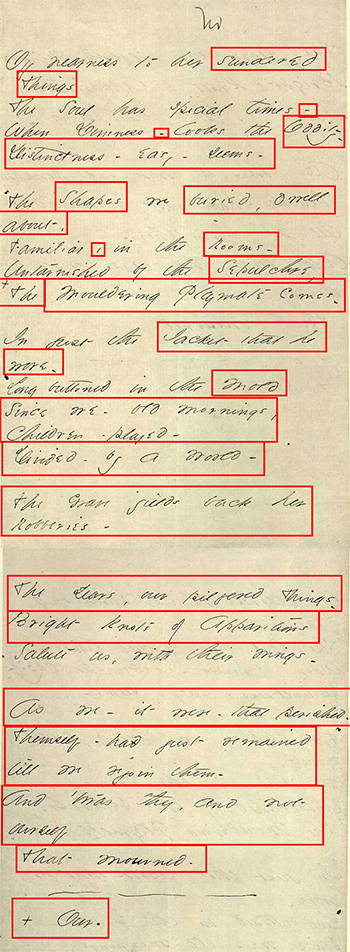 Of nearness to her sundered
things
The Soul has special times -
When Dimness - Looks the Oddity -
Distinctness - easy - seems -
The Shapes we buried, dwell
about,
Familiar, in the Rooms -
Untarnished by the Sepulchre,
+ The Mouldering Playmate Comes -
In just the Jacket that he
wore -
Long buttoned in the Mold
Since we - old mornings,
Children - played -
Divided - by a world -
The Grave yields back her
Robberies -
The Years, our pilfered Things -
Bright Knots of Apparitions
Salute us, with their wings -
As we - it were - that perished -
Themself - had just remained
till we rejoin them -
And 'twas they, and not
ourself
That mourned -
+ Our -